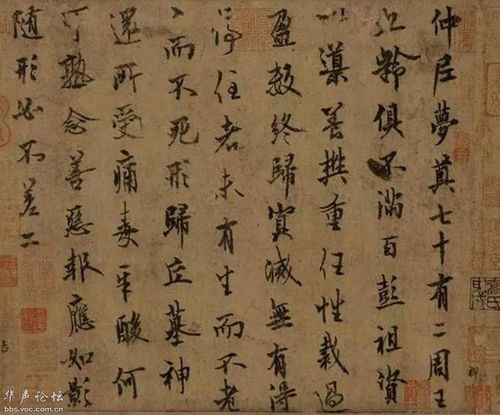 仲尼夢奠七十有二周王
九齡俱不滿百彭祖資
以導養樊重任性裁過
盈數終歸冥滅無有得
停住者未有生而不老
老而不死形歸丘墓神
還所受痛毒辛酸何
可熟念善惡報應如影
随形必不差二
华声论坛
bbs.voc.com.cn